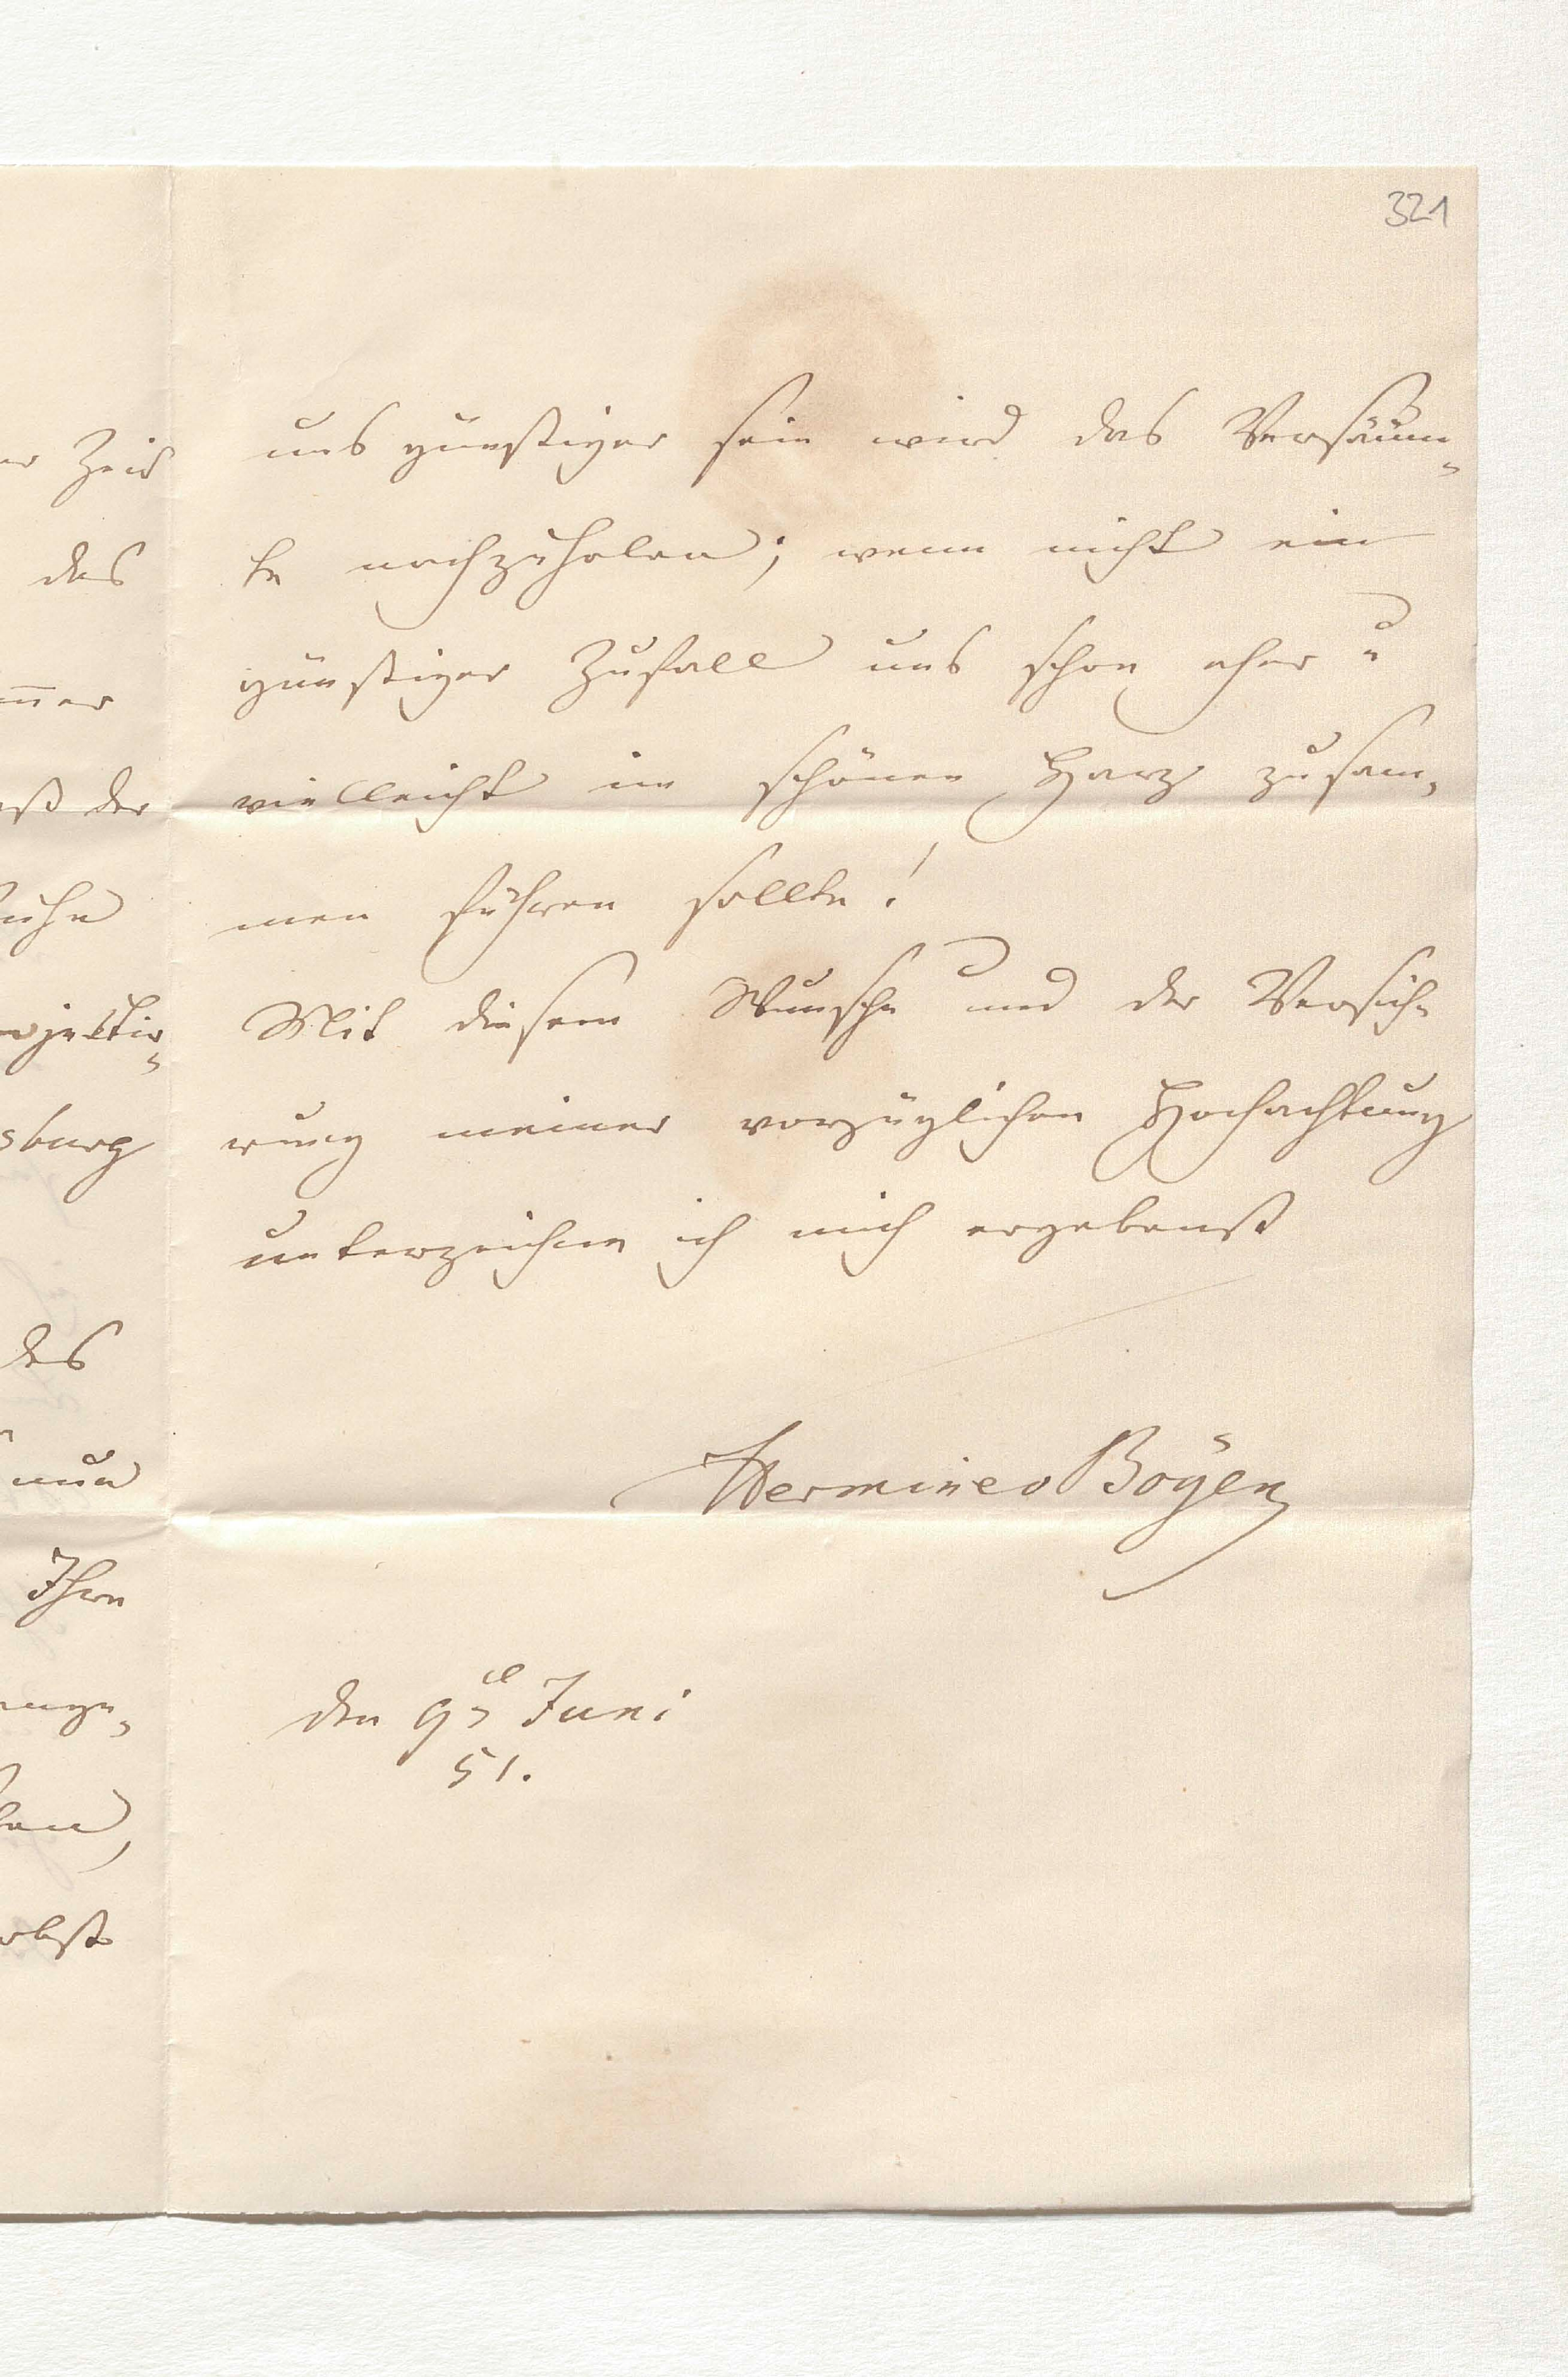 321
uns günstiger sein wird das Versäum-
te nachzuholen; wenn nicht ein
günstiger Zufall uns schon eher u
vielleicht im schönen Harz zusam-
men führen sollte!
Mit diesem Wunsche und der Versiche
rung meiner vorzüglichen Hochachtung
unterzeichne ich mich ergebenst
Hermine v Boÿen
den 9t Juni
51.
Zeit
das
ß der
des
nun
Ihre